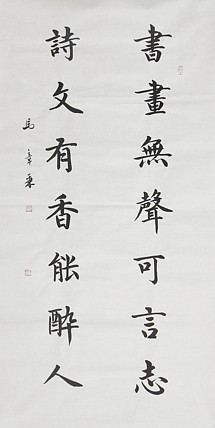 書畫無聲可言志
詩文有香能醉人
馬章乘